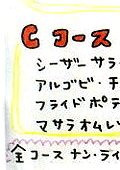 C コース
シーザー サラ
アルゴビ・チ
フライドポテ
マサラオムレ
全コース ナン・ライ